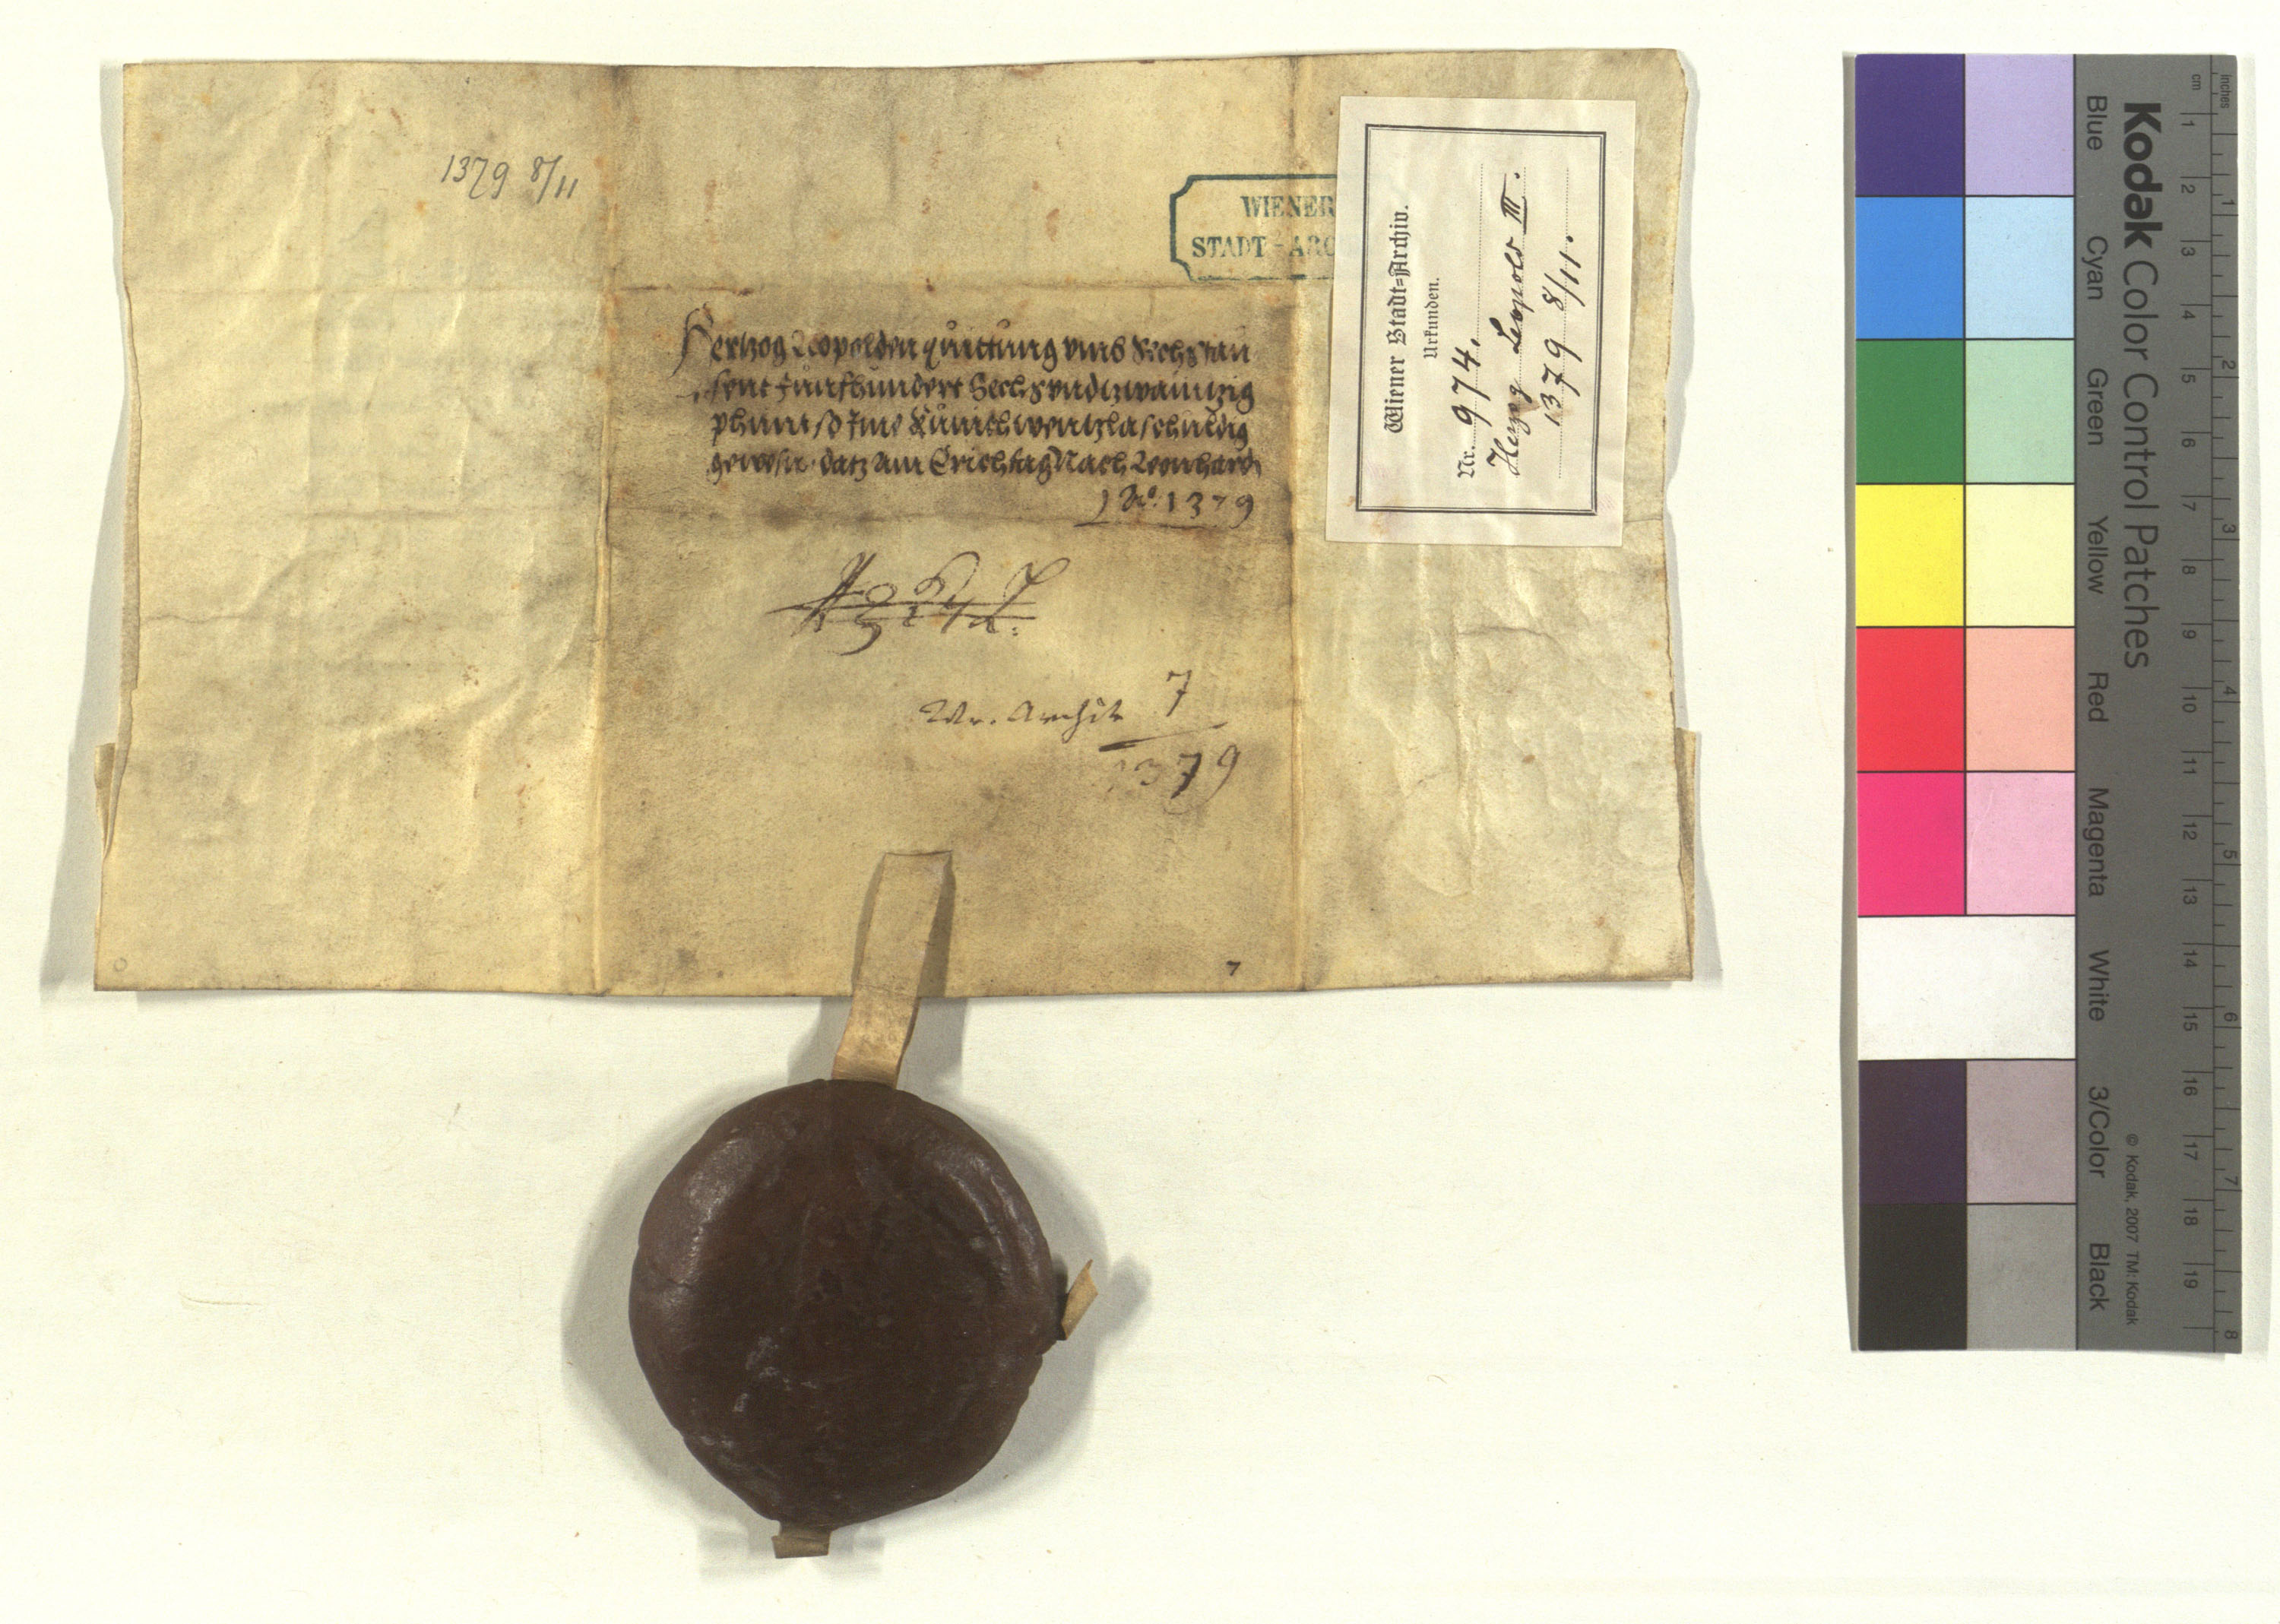 1379 8/11
WIENER
STADT-ARC
Hertzog Leopolden quittung umb Sechstau
sent funfhundert Sechsundtzwaintzig
phunt so Ime Kunich wentzla schuldig
gewesn datz am Erichtag Nach Leonhardi
Ao 1379
Wr. Archiv 7
1379
7
Wiener Stadt-Archiv.
Urkunden.
Nr. 974.
Herzog Leopold III.
1379 8/11.
Kodak Color Control Patches
Blue Cyan Green Yellow Red Magenta White 3/Color Black
© Kodak, 2007 TM: Kodak
inches 1 2 3 4 5 6 7 8
cm 1 2 3 4 5 6 7 8 9 10 11 12 13 14 15 16 17 18 19